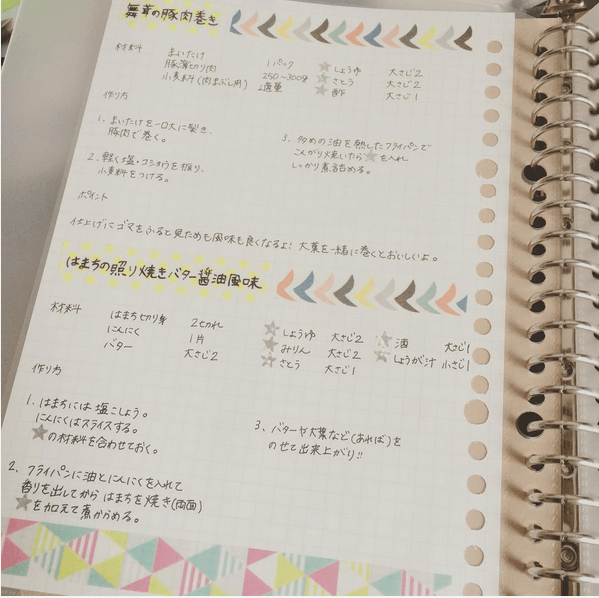 舞茸の豚肉巻き
材料 まいたけ 1パック ★しょうゆ 大さじ2
豚薄切り肉 250〜300g ★さとう 大さじ2
小麦料(肉まぶし用) 適量 ★酢 大さじ1
作り方
1、まいたけを一口大に裂き、
豚肉で巻く。
2、軽く塩・コショウを振り、
小麦料をつける。
3、多めの油を熱したフライパンで
こんがり焼いたら★を入れ
しっかり煮詰める。
ポイント
仕上げにゴマをふると見ためも風味も良くなるよ!大葉を一緒に巻くとおいしいよ。
はまちの照り焼きバター醤油風味
材料 はまち切り身 2切れ ★しょうゆ 大さじ2 ★酒 大さじ1
にんにく 1片 ★みりん 大さじ2 ★しょうが汁 小さじ1
バター 大さじ2 ★さとう 大さじ1
作り方
1、はまちには塩こしょう。
にんにくはスライスする。
★の材料を合わせておく。
2、フライパンに油とにんにくを入れて
香りを出してからはまちを焼き(両面)
★を加えて煮からめる。
3、バターや大葉など(あれば)を
のせて出来上がり!!